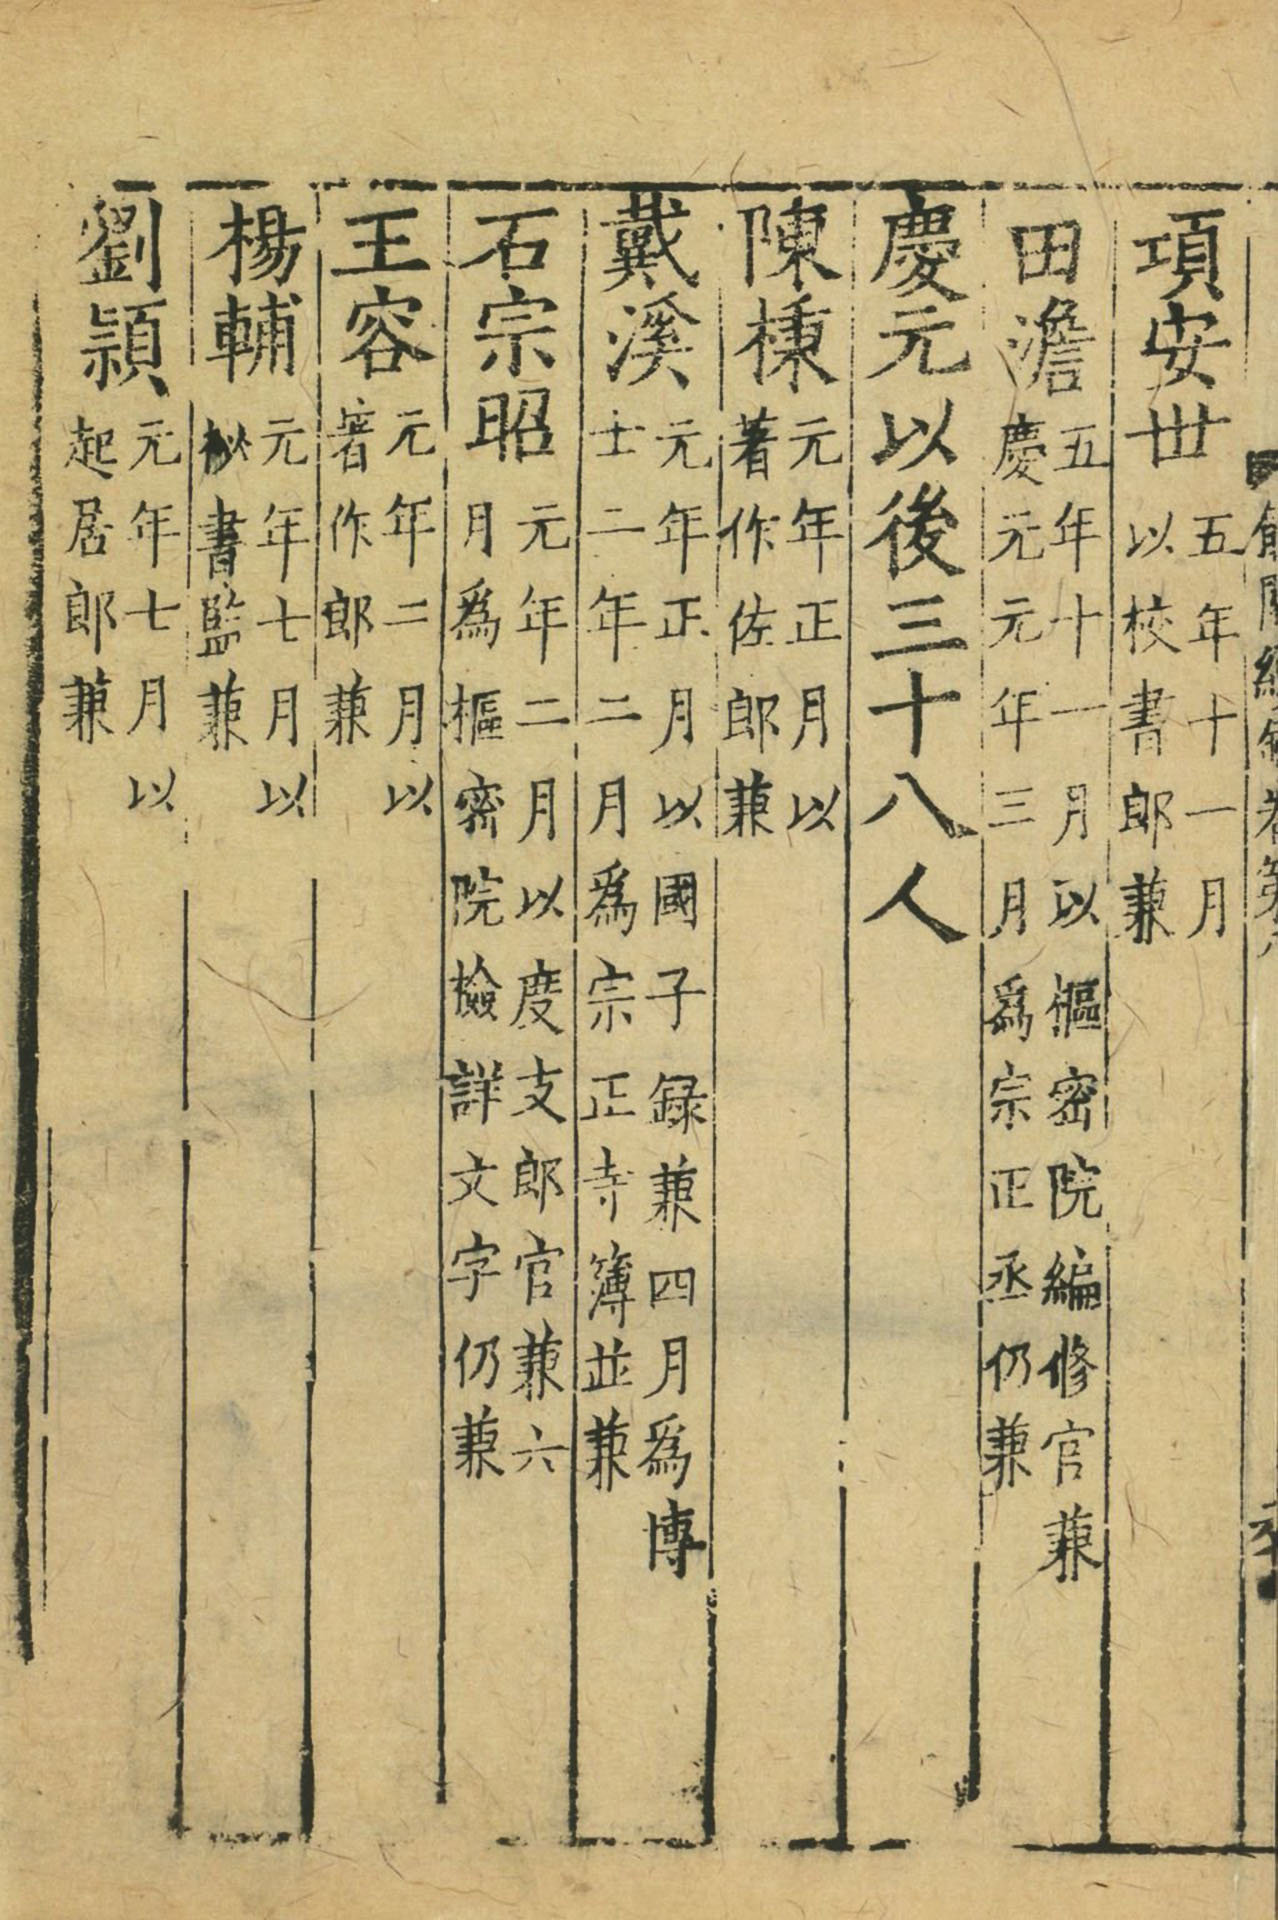 館閣續錄卷第八
項安丗五年十一月以校書郎兼
田澹五年十一月以樞密院編修官兼慶元元年三月爲宗正丞仍兼
慶元以後三十八人
陳棟元年正月以著作佐郎兼
戴溪元年正月以國子録兼四月爲博士二年二月爲宗正寺簿並兼
石宗昭元年二月以度支郎官兼六月爲樞密院檢詳文字仍兼
王容元年二月以著作郎兼
楊輔元年七月以秘書監兼
劉頴元年七月以起居郎兼